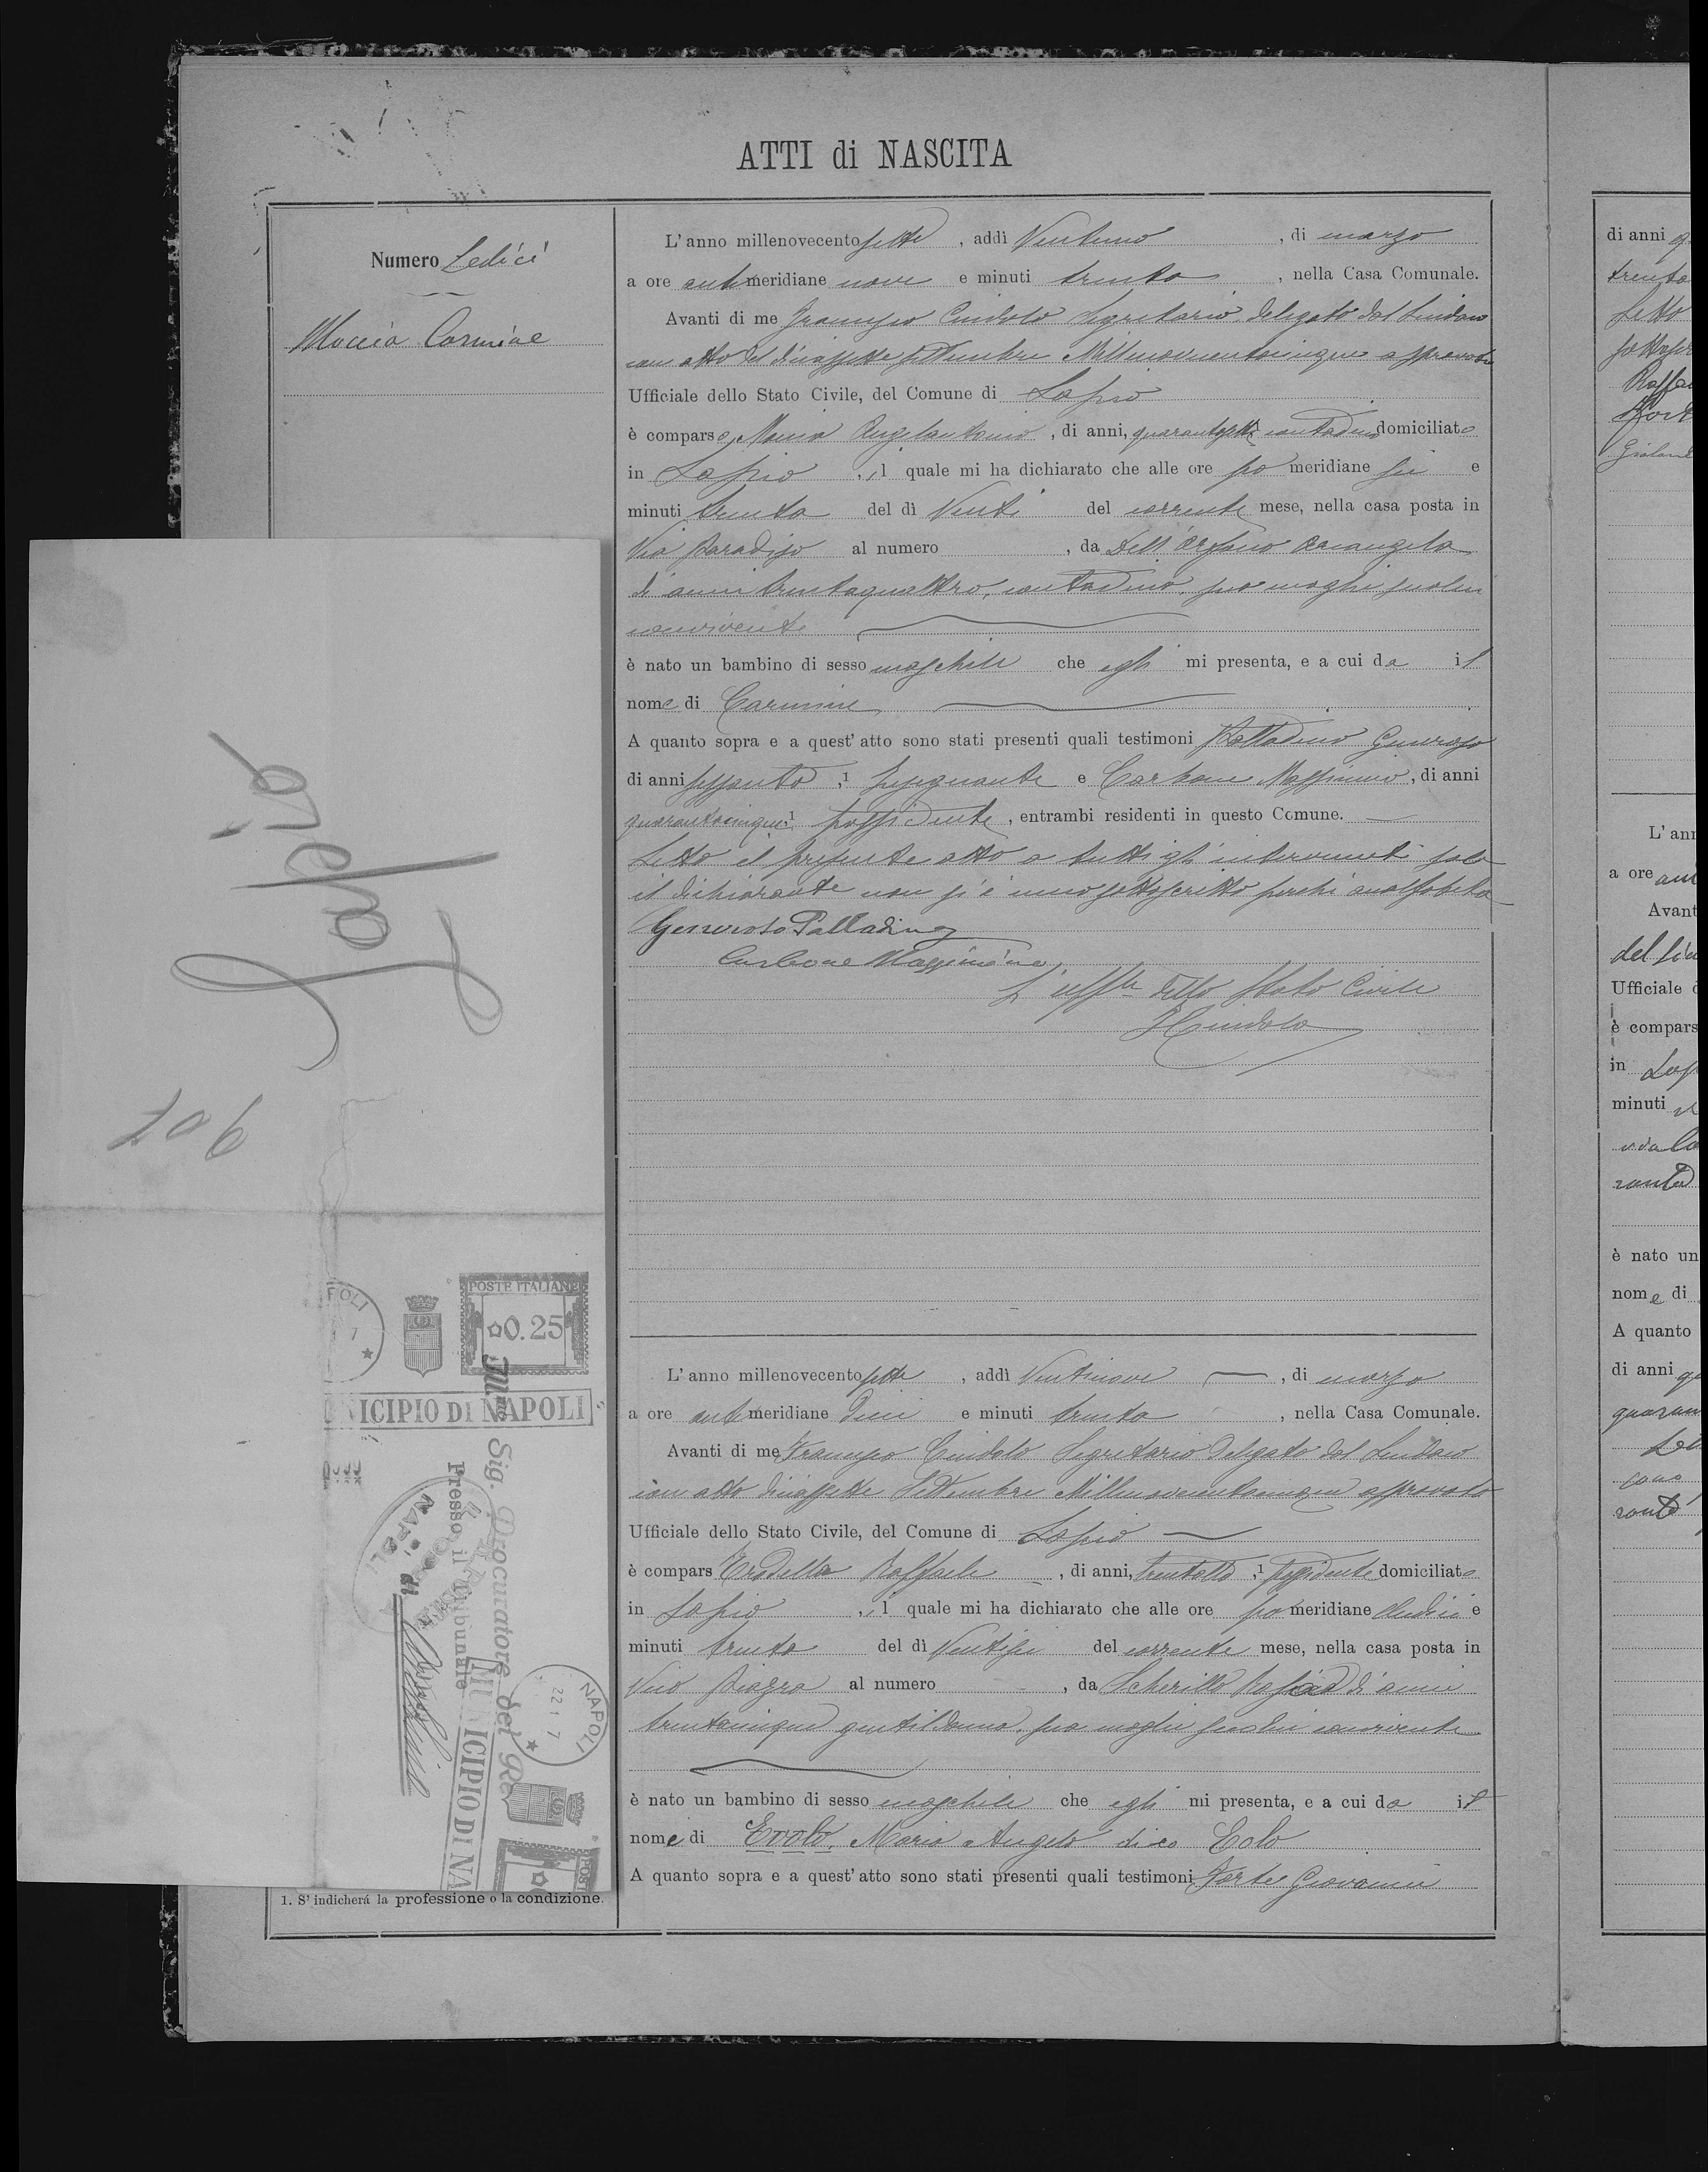 ATTI di NASCITA
Numero Sedici
Moccia Carmine
L'anno millenovecento sette, addì Ventuno, di marzo
a ore antimeridiane nove e minuti trenta, nella Casa Comunale.
Avanti di me Segretario delegato dal Sindaco
con atto del diciassette settembre Millenovecentocinque approvato
Ufficiale dello Stato Civile, del Comune di Lapio
è comparso Moccia Angelantonio, di anni, quarantasette contadino domiciliato
in Lapio, il quale mi ha dichiarato che alle ore pomeridiane sei e
minuti trenta del dì Venti del corrente mese, nella casa posta in
Via Paradiso al numero , da Dell'Orfano Arcangela
di anni trentaquattro, contadina, sua moglie secolui
convivente
è nato un bambino di sesso maschile che egli mi presenta, e a cui da il
nome di Carmine
A quanto sopra e a quest'atto sono stati presenti quali testimoni Palladino Generoso
di anni sessanta, 1 insegnante e Carbone Massimino, di anni
quarantacinque, 1 possidente, entrambi residenti in questo Comune.
Letto il presente atto a tutti gl'intervenuti solo
il dichiarante non si è meco sottoscritto perchè analfabeta
Generoso Palladino
Carbone Massimino
L'uff.le dello Stato Civile
L'anno millenovecento sette, addì Ventinove, di marzo
a ore antimeridiane dieci e minuti trenta, nella Casa Comunale.
Avanti di me Segretario delegato dal Sindaco
con atto diciassette Settembre Millenovecentocinque approvato
Ufficiale dello Stato Civile, del Comune di Lapio
è compars Raffaele, di anni, trentotto, 1 possidente domiciliato
in Lapio, il quale mi ha dichiarato che alle ore pomeridiane undici e
minuti trenta del dì Ventisei del corrente mese, nella casa posta in
Vico Piazza al numero , da Scherillo di anni
trentacinque gentildonna, sua moglie secolui convivente
è nato un bambino di sesso maschile che egli mi presenta, e a cui da il
nome di Erolo, Maria Angelo dico Eolo
A quanto sopra e a quest'atto sono stati presenti quali testimoni Forte Giovanni
1. S'indicherá la professione o la condizione.
Lapio
907
POSTE ITALIANE
0.25
NICIPIO DI NAPOLI
Ill.mo Sig. Procuratore del Re
Presso il Tribunale
di Avellino
NAPOLI
22 1 7
ICIPIO DI NA
di anni
trenta
Letto
L'ann
a ore
Avant
Ufficiale d
è compars
in Lap
minuti
è nato un
nome di
A quanto
di anni